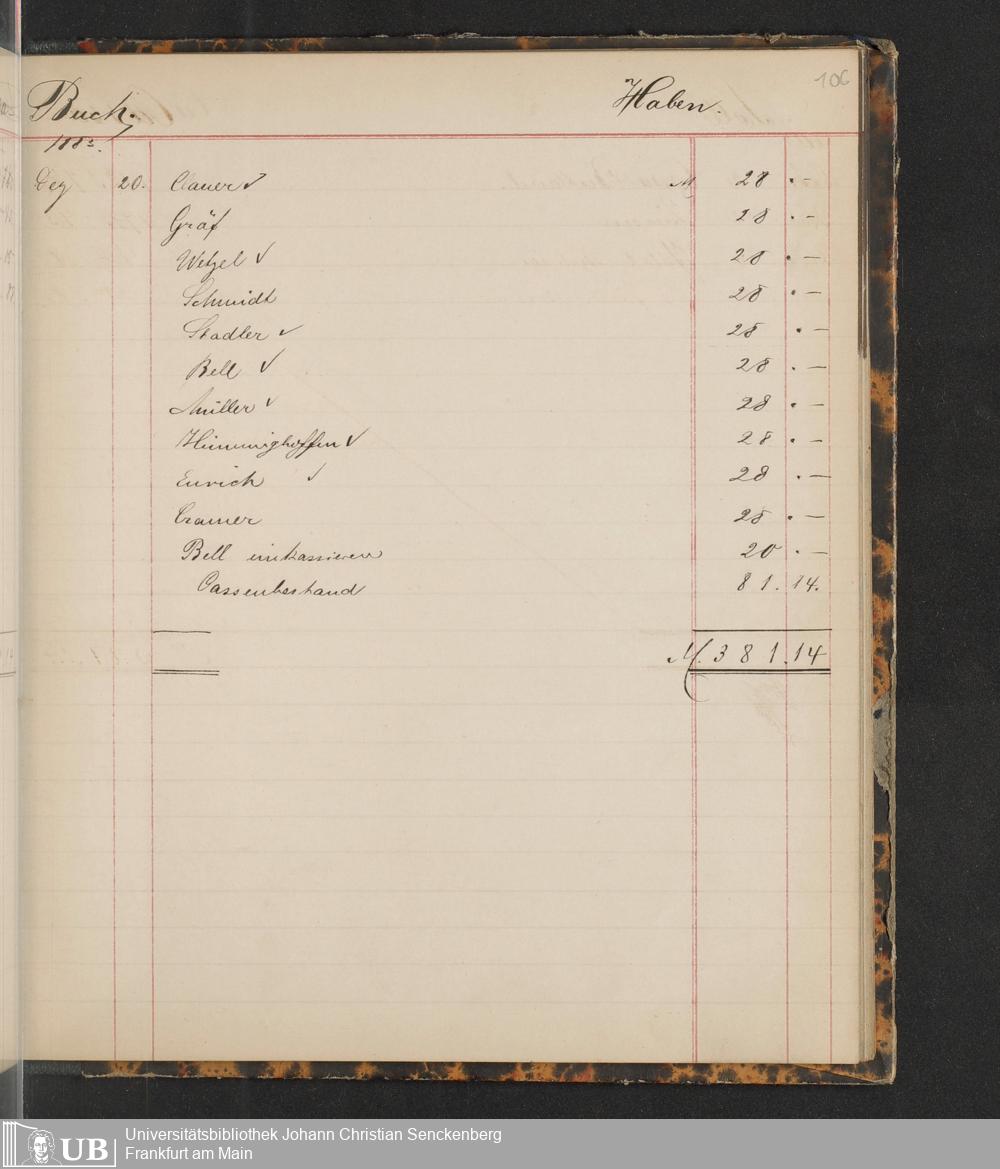 106
Buch. Haben.
188
Dez 20. Clauer ✓ M 28 . —
Gräf 28 . —
Wetzel ✓ 28 . —
Schmidt 28 . —
Stadler ✓ 28 . —
Bell ✓ 28 . —
Müller ✓ 28 . —
Himmighoffen ✓ 28 . —
Emrich ✓ 28 . —
Cramer 28 . —
Bell einkassieren 20 . —
Cassenbestand 81.14.
M. 381.14
UB
Universitätsbibliothek Johann Christian Senckenberg
Frankfurt am Main